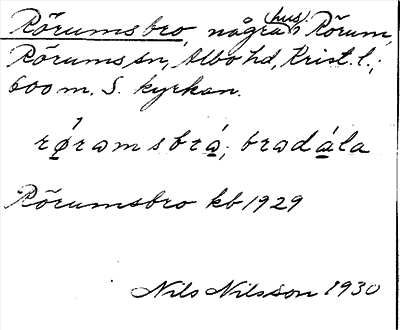 Rörumsbro, några hus i Rörum,
Rörums sn, Albo hd, Krist. l.;
600 m. S. kyrkan.
rǿrəmsbrɑ́; brədɑ́la
Rörumsbro kb 1929
Nils Nilsson 1930